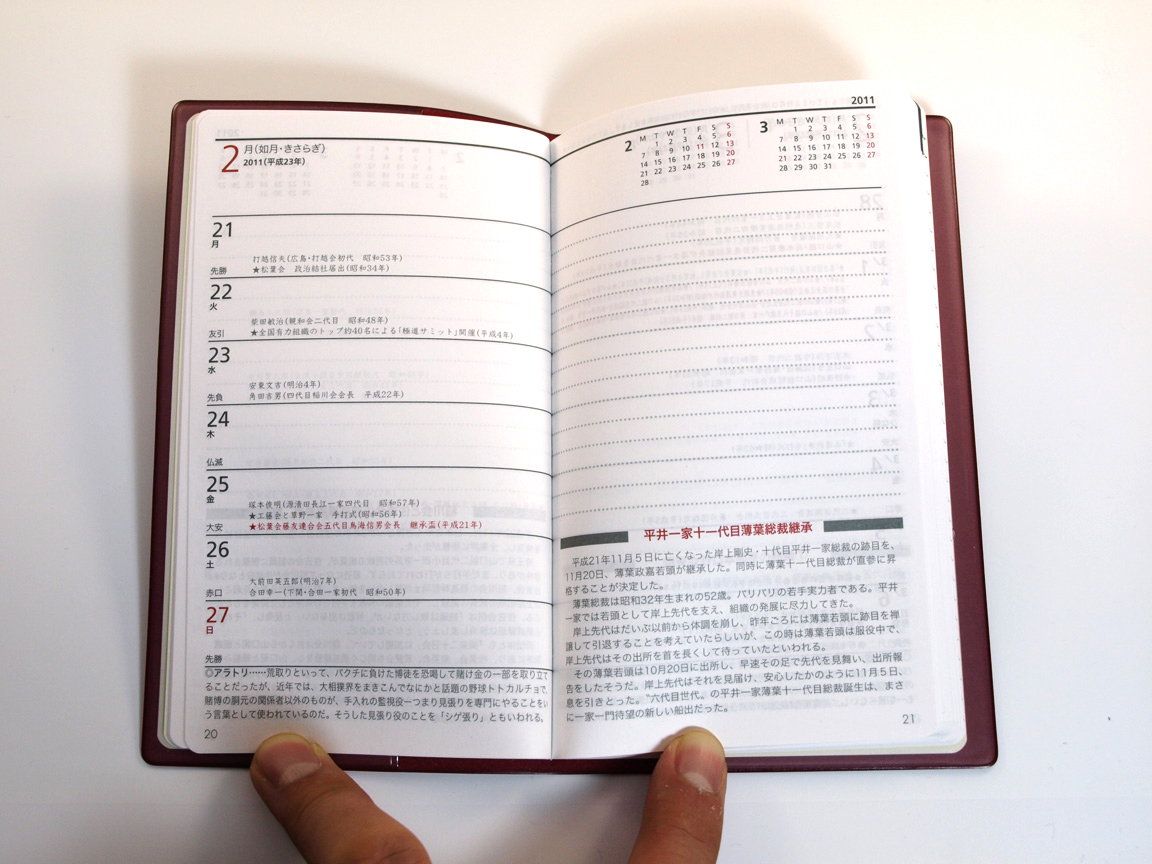 2 月(如月・きさらぎ)
2011(平成23年)
21
月
打越信夫(広島・打越会初代　昭和53年)
先勝 ★松葉会　政治結社届出(昭和34年)
22
火
柴田敏治(親和会二代目　昭和48年)
友引 ★全国有力組織のトップ約40名による「極道サミット」開催(平成4年)
23
水
安東文吉(明治4年)
先負 角田吉男(四代目稲川会会長　平成22年)
24
木
仏滅
25
金
塚本俊明(源清田長江一家四代目　昭和57年)
★工藤会と草野一家　手打式(昭和56年)
大安 ★松葉会藤友連合会五代目鳥海信男会長　継承盃(平成21年)
26
土
大前田英五郎(明治7年)
赤口 合田幸一(下関・合田一家初代　昭和50年)
27
日
先勝
◎アラトリ……荒取りといって、バクチに負けた博徒を恐喝して賭け金の一部を取り立て
ることだったが、近年では、大相撲界をまきこんでなにかと話題の野球トトカルチョで、
賭博の胴元の関係者以外のものが、手入れの監視役一つまり見張りを専門にやることをい
う言葉として使われているのだ。そうした見張り役のことを「シゲ張り」ともいわれる。
20
2011
2 M T W T F S S
1 2 3 4 5 6
7 8 9 10 11 12 13
14 15 16 17 18 19 20
21 22 23 24 25 26 27
28
3 M T W T F S S
1 2 3 4 5 6
7 8 9 10 11 12 13
14 15 16 17 18 19 20
21 22 23 24 25 26 27
28 29 30 31
平井一家十一代目薄葉総裁継承
平成21年11月5日に亡くなった岸上剛史・十代目平井一家総裁の跡目を、
11月20日、薄葉政嘉若頭が継承した。同時に薄葉十一代目総裁が直参に昇
格することが決定した。
薄葉総裁は昭和32年生まれの52歳。バリバリの若手実力者である。平井
一家では若頭として岸上先代を支え、組織の発展に尽力してきた。
岸上先代はだいぶ以前から体調を崩し、昨年ごろには薄葉若頭に跡目を禅
譲して引退することを考えていたらしいが、この時は薄葉若頭は服役中で、
岸上先代はその出所を首を長くして待っていたといわれる。
その薄葉若頭は10月20日に出所し、早速その足で先代を見舞い、出所報
告をしたそうだ。岸上先代はそれを見届け、安心したかのように11月5日、
息を引きとった。"六代目世代。の平井一家薄葉十一代目総裁誕生は、まさ
に一家一門待望の新しい船出だった。
21